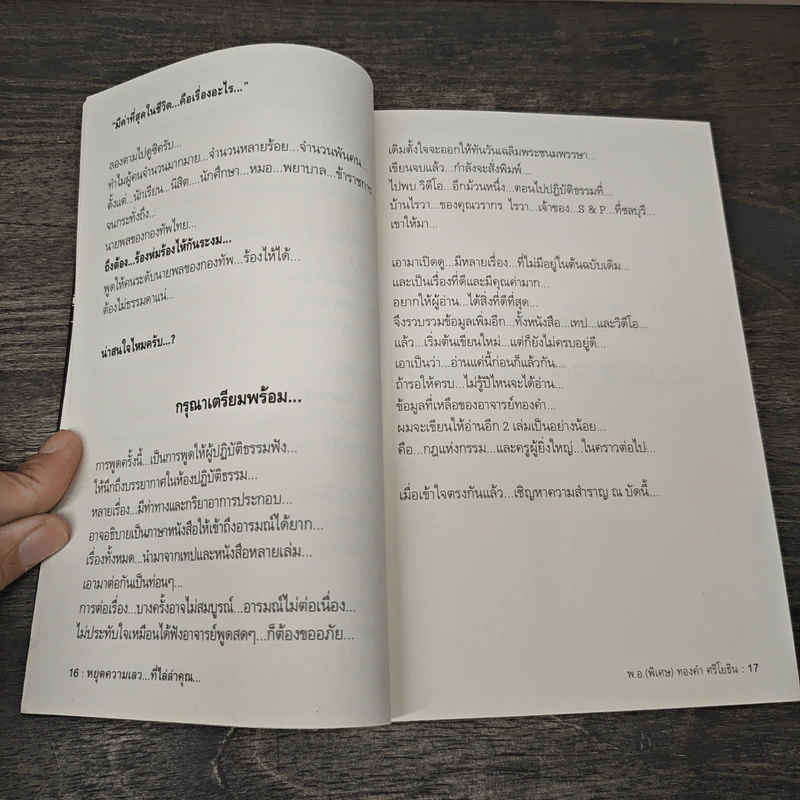 "มีค่าที่สุดในชีวิต...คือเรื่องอะไร..."
ลองตามไปดูซิครับ...
ทำไมผู้คนจำนวนมากมาย...จำนวนหลายร้อย...จำนวนพันคน...
ตั้งแต่...นักเรียน...นิสิต....นักศึกษา...หมอ...พยาบาล...ข้าราชการ
จนกระทั่งถึง...
นายพลของกองทัพไทย...
ถึงต้อง...ร้องห่มร้องไห้กันระงม...
พูดให้คนระดับนายพลของกองทัพ...ร้องไห้ได้...
ต้องไม่ธรรมดาแน่...
น่าสนใจไหมครับ...?
กรุณาเตรียมพร้อม...
การพูดครั้งนี้...เป็นการพูดให้ผู้ปฏิบัติธรรมฟัง...
ให้นึกถึงบรรยากาศในห้องปฏิบัติธรรม...
หลายเรื่อง...มีท่าทางและกริยาอาการประกอบ...
อาจอธิบายเป็นภาษาหนังสือให้เข้าถึงอารมณ์ได้ยาก...
เรื่องทั้งหมด...นำมาจากเทปและหนังสือหลายเล่ม...
เอามาต่อกันเป็นท่อนๆ...
การต่อเรื่อง...บางครั้งอาจไม่สมบูรณ์...อารมณ์ไม่ต่อเนื่อง...
ไม่ประทับใจเหมือนได้ฟังอาจารย์พูดสดๆ...ก็ต้องขออภัย...
16 : หยุดความเลว...ที่ไล่ล่าคุณ...
เดิมตั้งใจจะออกให้ทันวันเฉลิมพระชนมพรรษา...
เขียนจบแล้ว...กำลังจะสั่งพิมพ์...
ไปพบ วิดีโอ...อีกม้วนหนึ่ง...ตอนไปปฏิบัติธรรมที่...
บ้านไรวา...ของคุณวรากร ไรวา...เจ้าของ...S & P...ที่ชลบุรี...
เขาให้มา...
เอามาเปิดดู...มีหลายเรื่อง...ที่ไม่มีอยู่ในต้นฉบับเดิม...
และเป็นเรื่องที่ดีและมีคุณค่ามาก...
อยากให้ผู้อ่าน...ได้สิ่งที่ดีที่สุด...
จึงรวบรวมข้อมูลเพิ่มอีก...ทั้งหนังสือ...เทป...และวิดีโอ...
แล้ว...เริ่มต้นเขียนใหม่...แต่ก็ยังไม่ครบอยู่ดี...
เอาเป็นว่า...อ่านแค่นี้ก่อนก็แล้วกัน...
ถ้ารอให้ครบ...ไม่รู้ปีไหนจะได้อ่าน...
ข้อมูลที่เหลือของอาจารย์ทองคำ...
ผมจะเขียนให้อ่านอีก 2 เล่มเป็นอย่างน้อย...
คือ...กฎแห่งกรรม...และครูผู้ยิ่งใหญ่...ในคราวต่อไป...
เมื่อเข้าใจตรงกันแล้ว...เชิญหาความสำราญ ณ บัดนี้...
พ.อ.(พิเศษ) ทองคำ ศรีโยธิน : 17